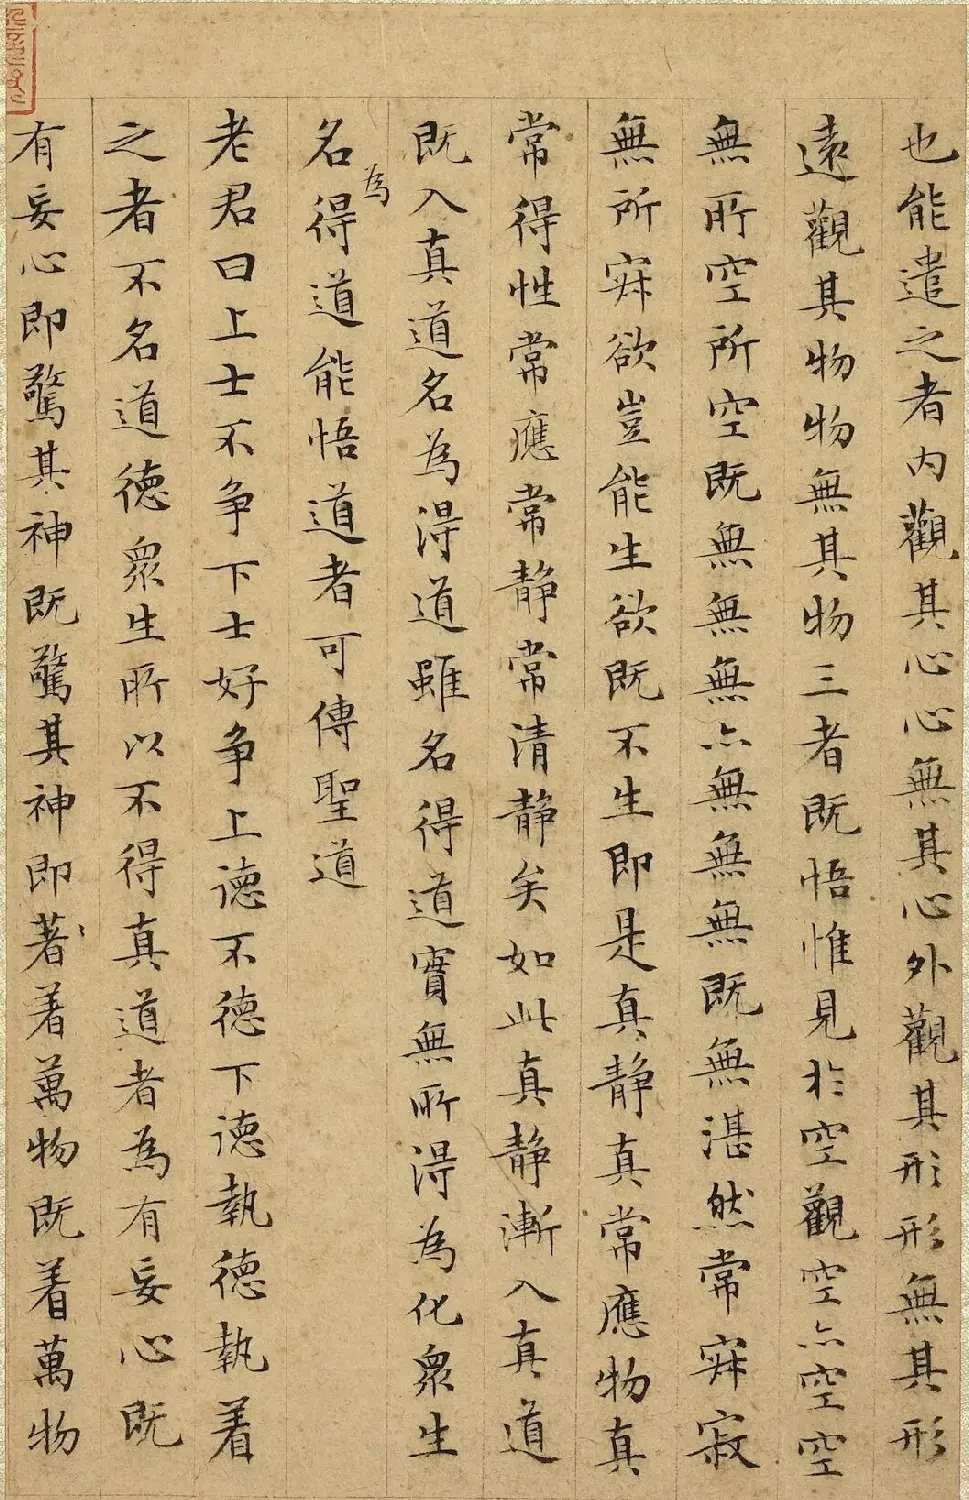 也能遣之者內觀其心心無其心外觀其形形無其形
遠觀其物物無其物三者既悟惟見於空觀空亦空空
無所空所空既無無無亦無無無既無湛然常寂寂
無所寂欲豈能生欲既不生即是真靜真常應物真
常得性常應常靜常清靜矣如此真靜漸入真道
既入真道名為得道雖名得道實無所得為化眾生
名為得道能悟道者可傳聖道
老君曰上士不争下士好争上德不德下德執德執着
之者不名道德眾生所以不得真道者為有妄心既
有妄心即驚其神既驚其神即著着萬物既着萬物